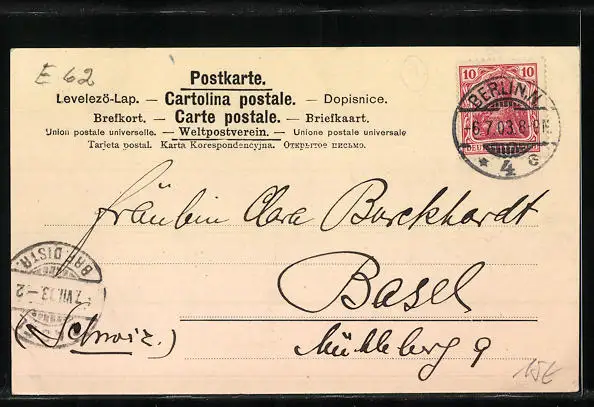 E 62
Postkarte.
Levelező-Lap. — Cartolina postale. — Dopisnice.
Brefkort. — Carte postale. — Briefkaart.
Union postale universelle. — Weltpostverein. — Unione postale universale
Tarjeta postal. Karta Korespondencyjna. Открытое письмо.
10 10
BERLIN.N.
6.7.03.8
* 4 c
Fräulein Clara Burckhardt
Basel
(Schweiz.)
Mühleberg 9
BRF. DISTR.
7.VII.03.–2
15E